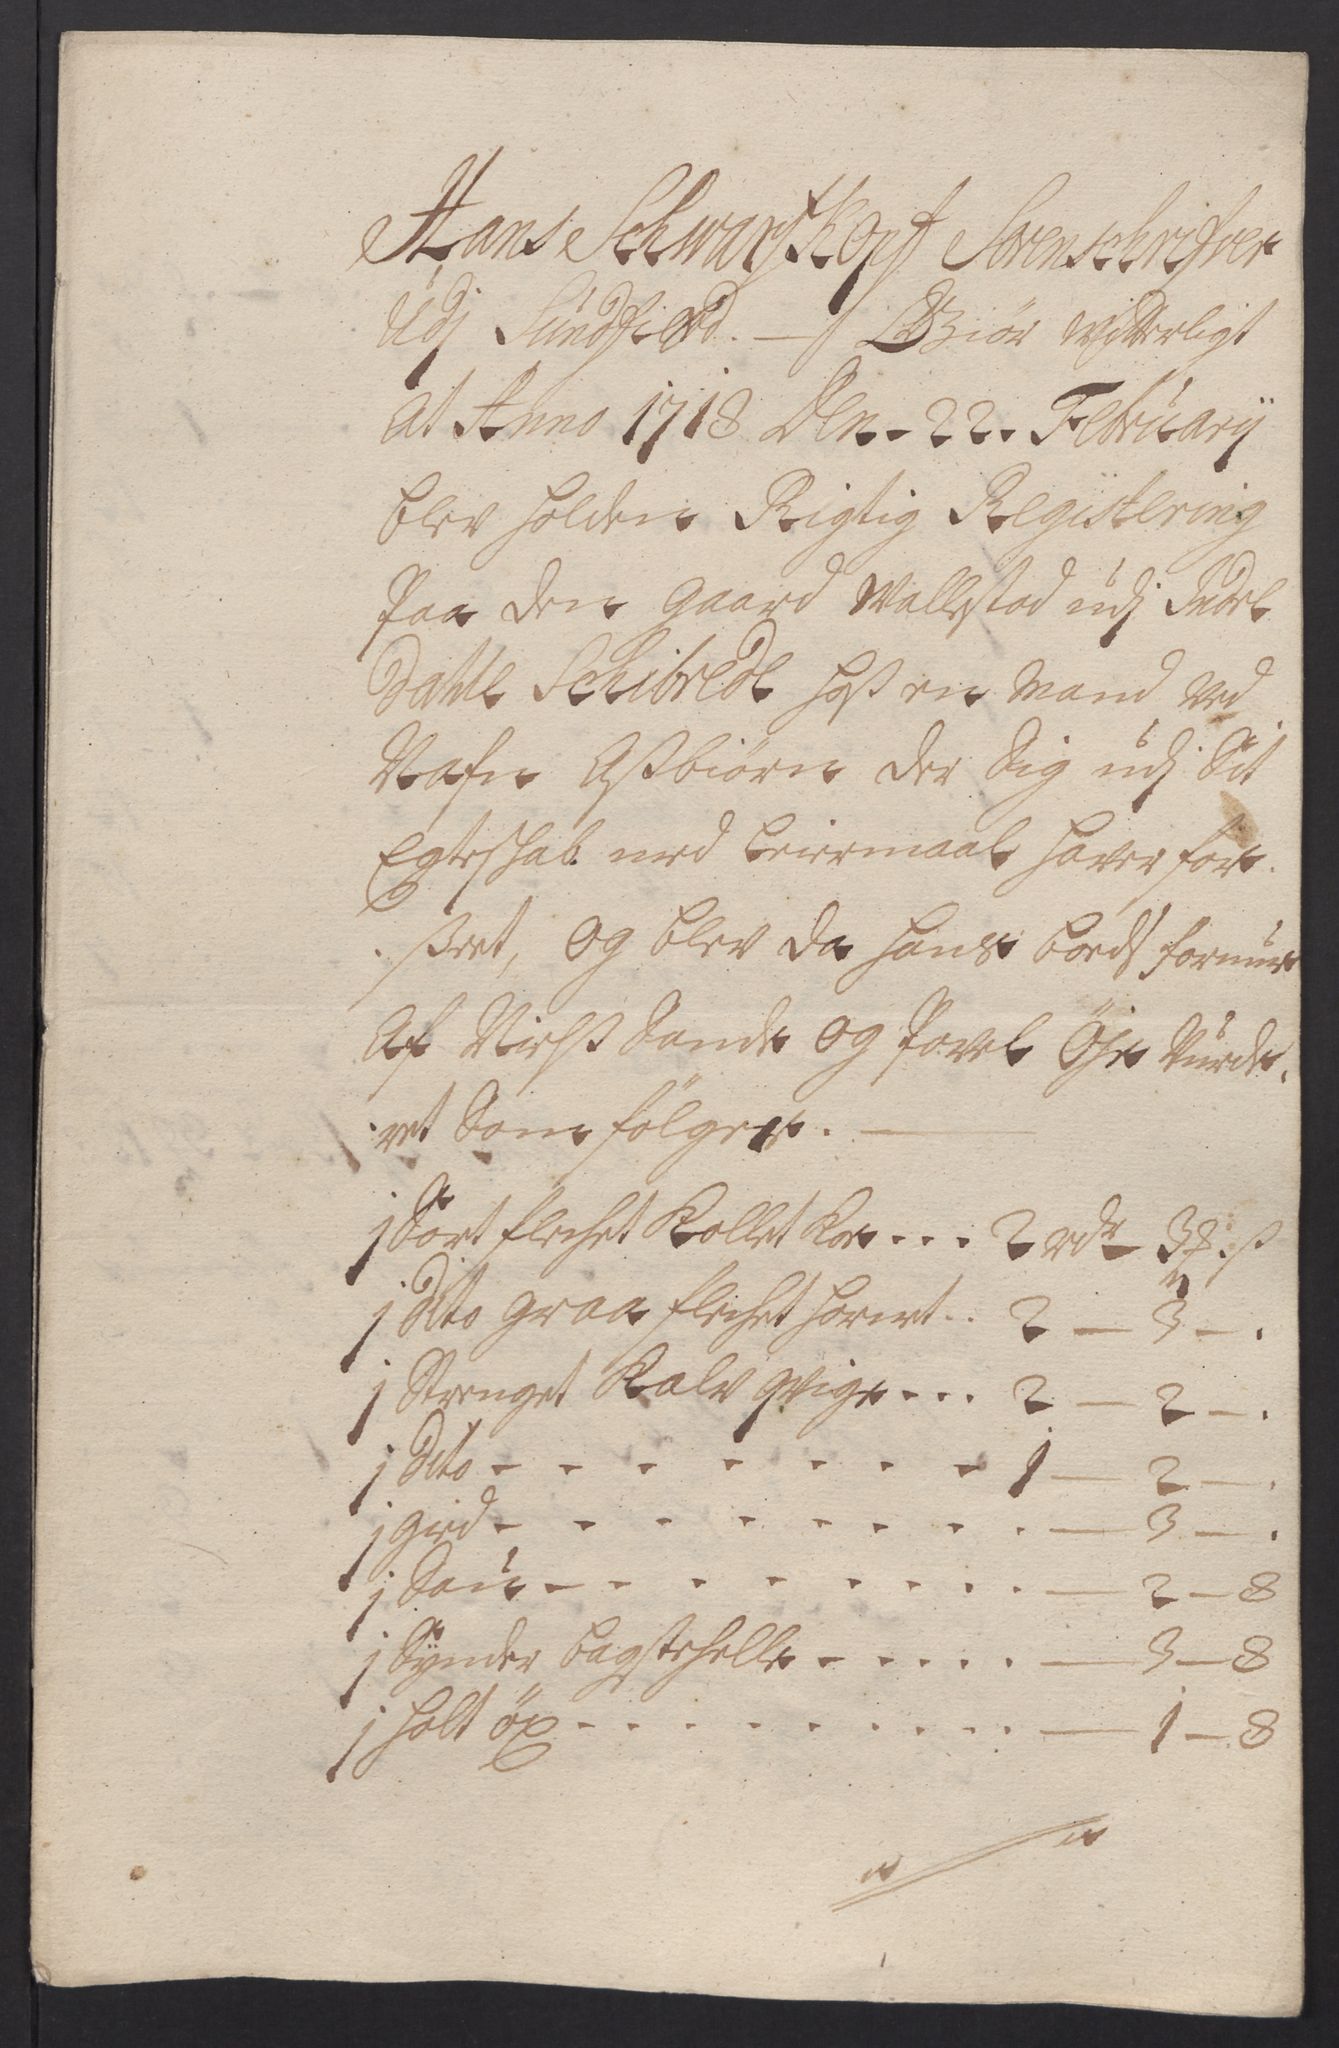 Hans Schwartzkopf Sorenschrifver
Udj Sündfiord. — Giör witterligt
at Anno 1718 Den. 22. Februarij
blev holden Rigtig Registering
Paa den gaard Wallestad udj Indre
Dahle Schibrede hoß en Mand ved
Nafn Aßbiørn der Sig udj Sit
Egteschab med Leiermaal haver for-
seet, og blev da hans boeds formue
Af Nielß Sande og Povel Öje Vurde-
ret Som følger. —
j Sort flechet Kollet Koe . . . 2 rdr 3 ß
j Dito graa flechet hornet . . 2 — 3 — .
j Strenget Kalv qvige . . . 2 — 2 — .
j Dito - - - - - - - 1 — 2 — .
j gied - - - - - - - - . — 3 — .
j Sau - - - - - - - - . — 2 — 8
j Synder bagstehelle - - - - . — 3 — 8
j holt öx - - - - - - - - . — 1 — 8